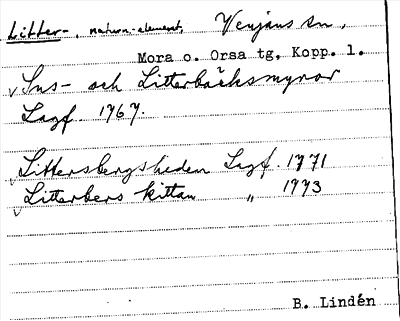 Litter-, natur-element, Venjans sn,
Mora o. Orsa tg, Kopp. l.
√ Sns- och Litterbäcksmyror
Lagf. 1767.
√ Littersbergsheden Lagf. 1771
√ Litterbers kittan " 1773
B. Lindén